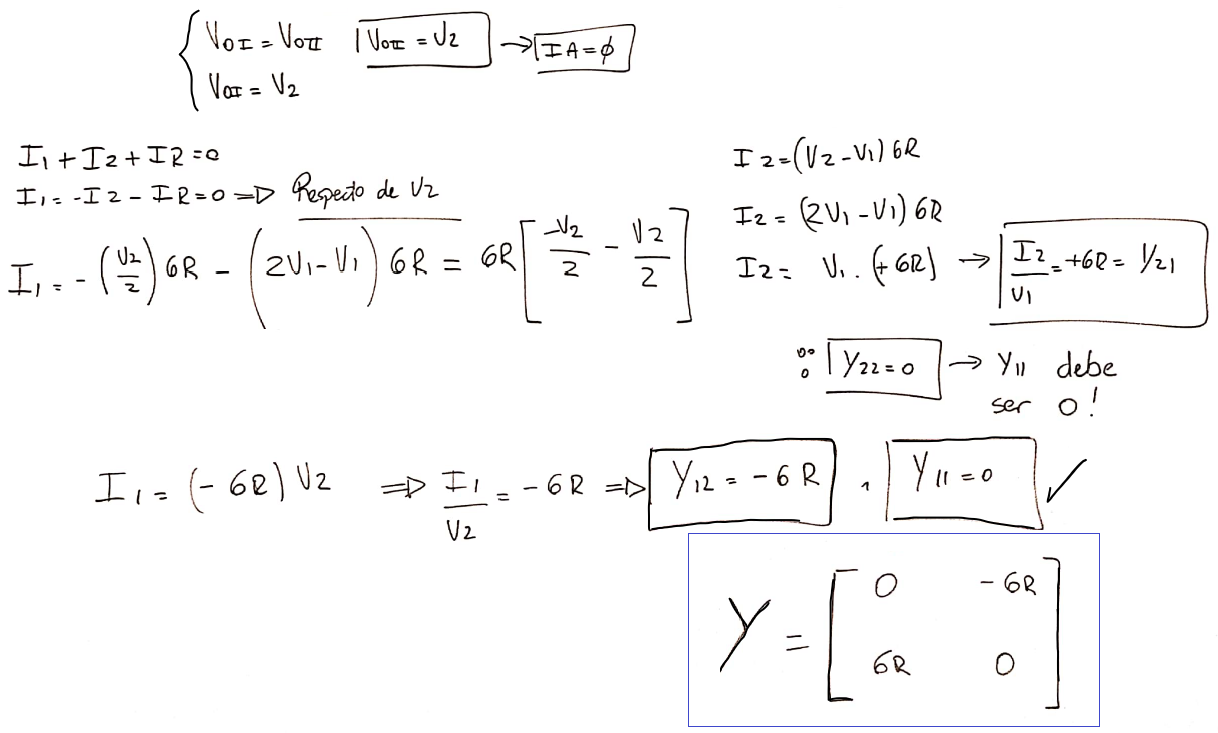 V0I = V0II V0II = V2 → IA = ϕ
V0I = V2
I1 + I2 + IR = 0
I1 = -I2 - IR = 0 => Respecto de V2
I1 = -(V2/2) GR - (2V1 - V1) GR = GR [-V2/2 - V2/2]
I2 = (V2 - V1) GR
I2 = (2V1 - V1) GR
I2 = V1 . (+GR) → I2/V1 = +GR = Y21
∴ Y22 = 0 → Y11 debe
ser 0!
I1 = (-GR) V2 => I1/V2 = -GR => Y12 = -GR , Y11 = 0 ✓
Y = [ 0 -GR
GR 0 ]